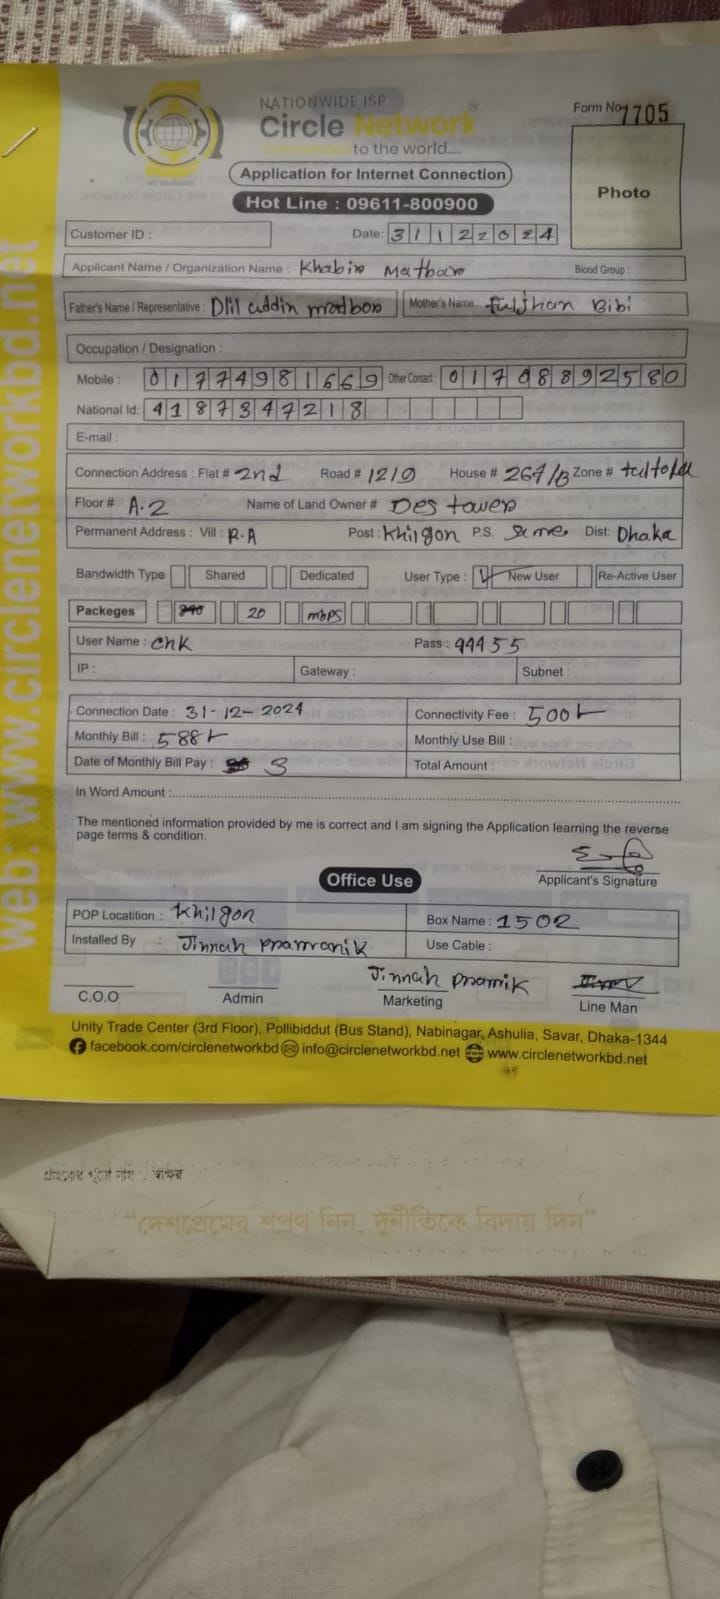 NATIONWIDE ISP
Circle Network
Connected to the world....
Form No. 7705
Application for Internet Connection
Photo
Hot Line : 09611-800900
Customer ID :
Date: 31122024
Applicant Name / Organization Name : Khabir Matbar
Blood Group :
Father's Name / Representative : Dlil uddin matbor Mother's Name : fuljhan Bibi
Occupation / Designation :
Mobile : 01774981669 Other Contact : 01708892580
National Id: 4187347218
E-mail :
Connection Address : Flat # 2nd Road # 1219 House # 267/B Zone #
Floor # A.2 Name of Land Owner # Des tower
Permanent Address : Vill : R.A Post : Khilgon P.S. Same Dist: Dhaka
Bandwidth Type Shared Dedicated User Type : New User Re-Active User
Packeges 20 mbps
User Name : cnk Pass :
IP : Gateway : Subnet :
Connection Date : 31-12-2024 Connectivity Fee : 500
Monthly Bill : 588 Monthly Use Bill :
Date of Monthly Bill Pay : Total Amount :
In Word Amount :
The mentioned information provided by me is correct and I am signing the Application learning the reverse
page terms & condition.
Applicant's Signature
Office Use
POP Locatition : Khilgon Box Name : 1502
Installed By : Jinnah pramranik Use Cable :
Jinnah pramik
C.O.O Admin Marketing Line Man
Unity Trade Center (3rd Floor), Pollibiddut (Bus Stand), Nabinagar, Ashulia, Savar, Dhaka-1344
facebook.com/circlenetworkbd info@circlenetworkbd.net www.circlenetworkbd.net
web: www.circlenetworkbd.net
"দেশপ্রেমের শপথ নিন, দুর্নীতিকে বিদায় দিন"